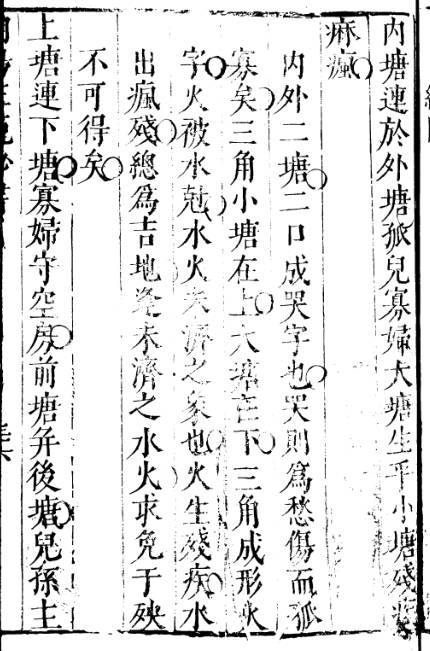 内塘連於外塘孤兒寡婦大塘生乎小塘殘疾
麻瘋
内外二塘二口成哭字也哭則爲愁傷而孤
寡矣三角小塘在上大塘在下三角成形火
字火被水尅水火未濟之象也火生殘疾水
出瘋殘總爲吉地逢未濟之水火求免于殃
不可得矣
上塘連下塘寡婦守空房前塘并後塘兒孫主